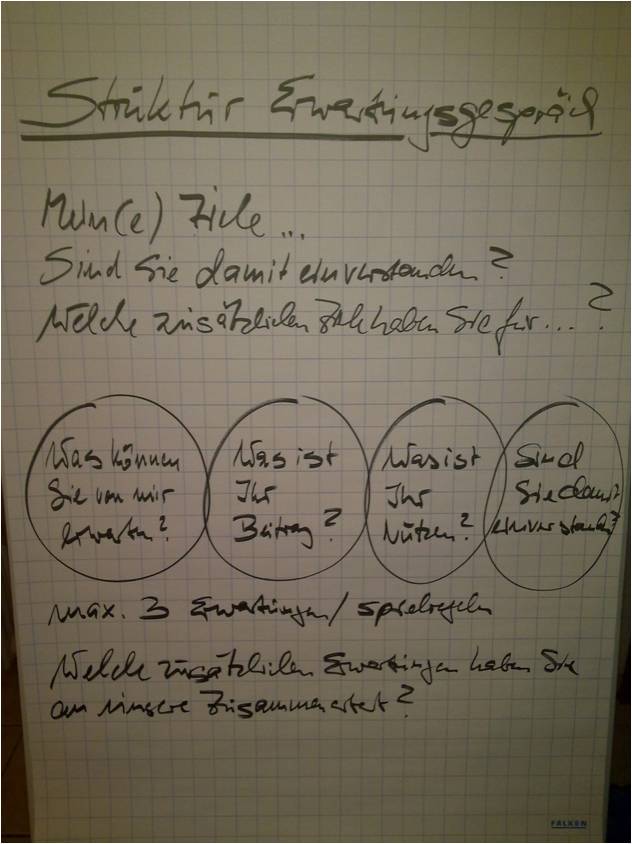 Struktur Erwartungsgespräch
Mein(e) Ziele...
Sind Sie damit einverstanden?
Welche zusätzlichen Ziele haben Sie für...?
Was können
Sie von mir
erwarten?
Was ist
Ihr
Beitrag?
Was ist
Ihr
Nutzen?
Sind
Sie damit
einverstanden?
max. 3 Erwartungen/Spielregeln
Welche zusätzlichen Erwartungen haben Sie
an unsere Zusammenarbeit?
FALKEN